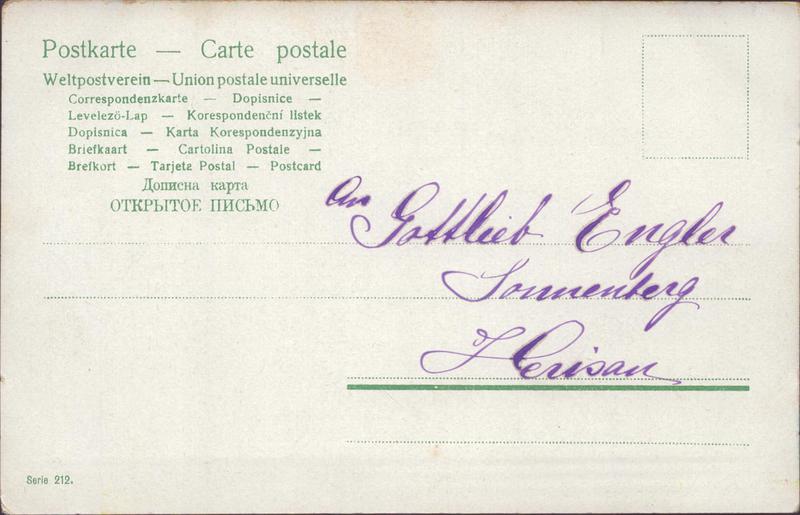 Postkarte — Carte postale
Weltpostverein — Union postale universelle
Correspondenzkarte — Dopisnice —
Levelező-Lap — Korespondenční lístek
Dopisnica — Karta Korespondenzyjna
Briefkaart — Cartolina Postale —
Brefkort — Tarjeta Postal — Postcard
Дописна карта
ОТКРЫТОЕ ПИСЬМО
An
Gottlieb Engler
Sonnenberg
Herisau
Serie 212.